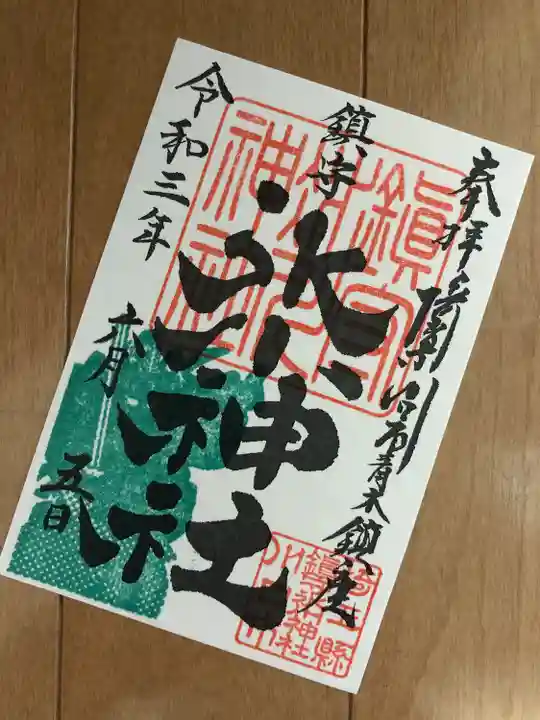 奉拝 武蔵國川口市青木鎮座
鎮守
氷川神社
令和三年
六月
五日
鎮守氷川神社
埼玉縣
鎮守氷川神社
川口市